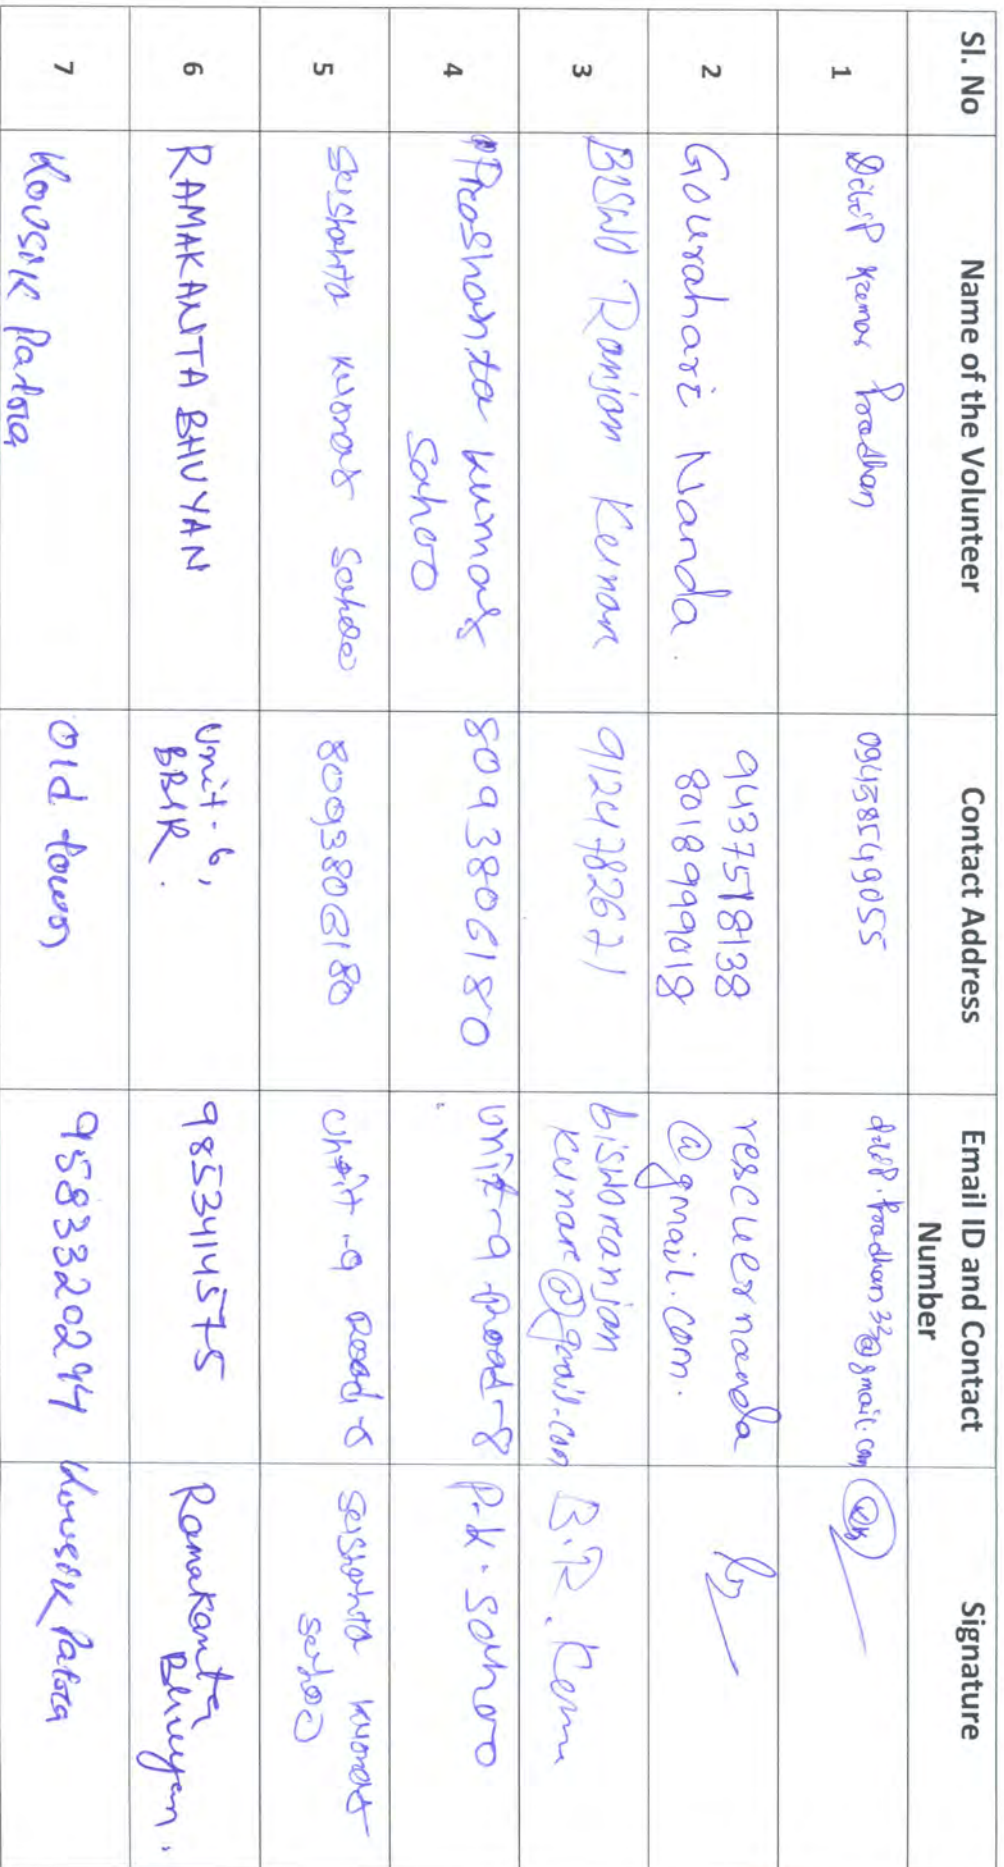 Sl. No Name of the Volunteer Contact Address Email ID and Contact Number Signature
1 Dilip Kumar Pradhan 09438549055 dilip.pradhan33@gmail.com
2 Gourahari Nanda. 9437518138
8018999018 rescuernanda
@gmail.com.
3 BISWO Ranjan Kumar 9124782671 bisworanjan
kumar@gmail.com B.R. Kumar
4 Prashanta kumar
Sahoo 8093806180 unit-9 Road-8 P.K. Sahoo
5 Sushanta kumar Sahoo 8093806180 unit-9 Road-8 Sushanta kumar
Sahoo
6 RAMAKANTA BHUYAN Unit-6,
BBSR. 9853414575 Ramakanta
Bhuyan.
7 Kousik Patra Old town 9583320294 Kousik Patra